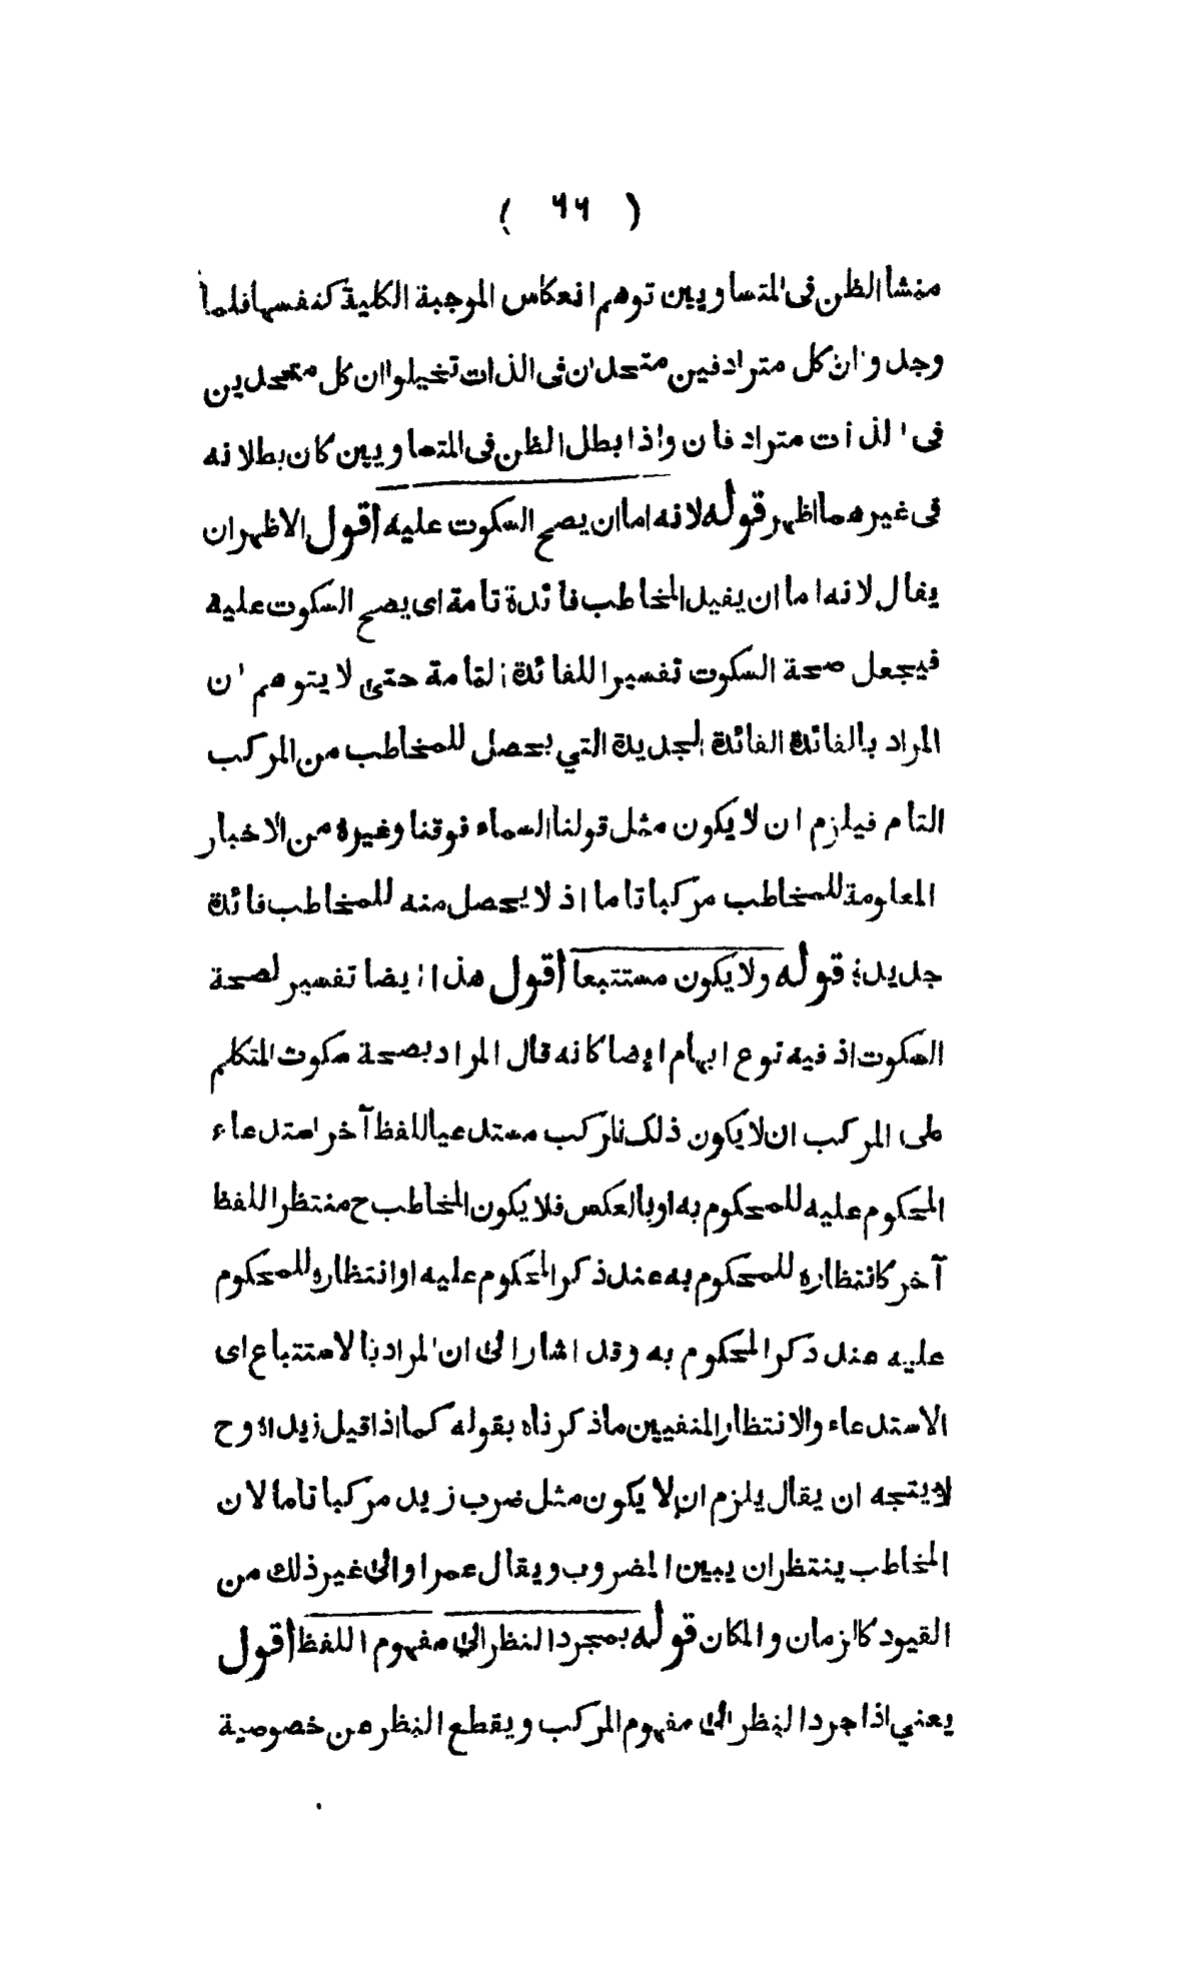 ( ٦٦ )
منشأ الظن فى المتساويين توهم انعكاس الموجبة الكلية كنفسها فلما
وجدوا ان كل مترادفين متحدان فى الذات تخيلوا ان كل متحدين
فى الذات مترادفان واذا بطل الظن فى المتساويين كان بطلانه
فى غيرهما اظهر قوله لانه اما ان يصح السكوت عليه اقول الاظهر ان
يقال لانه اما ان يفيد المخاطب فائدة تامة اى يصح السكوت عليه
فيجعل صحة السكوت تفسيرا للفائدة التامة حتى لا يتوهم ان
المراد بالفائدة الفائدة الجديدة التي يحصل للمخاطب من المركب
التام فيلزم ان لا يكون مثل قولنا السماء فوقنا وغيره من الاخبار
المعلومة للمخاطب مركبا تاما اذ لا يحصل منه للمخاطب فائدة
جديدة قوله ولا يكون مستتبعا اقول هذا ايضا تفسير لصحة
السكوت اذ فيه نوع ابهام ايضا كانه قال المراد بصحة سكوت المتكلم
على المركب ان لا يكون ذلك المركب مستدعيا للفظ آخر استدعاء
المحكوم عليه للمحكوم به او بالعكس فلا يكون المخاطب ح منتظرا للفظ
آخر كانتظاره للمحكوم به عند ذكر المحكوم عليه او انتظاره للمحكوم
عليه عند ذكر المحكوم به وقد اشار الى ان المراد بالاستتباع اى
الاستدعاء والانتظار المنفيين ما ذكرناه بقوله كما اذا قيل زيد اذ وح
لا يتجه ان يقال يلزم ان لا يكون مثل ضرب زيد مركبا تاما لان
المخاطب ينتظر ان يبين المضروب ويقال عمرا والى غير ذلك من
القيود كالزمان والمكان قوله بمجرد النظر الى مفهوم اللفظ اقول
يعني اذا جرد النظر الى مفهوم المركب ويقطع النظر عن خصوصية